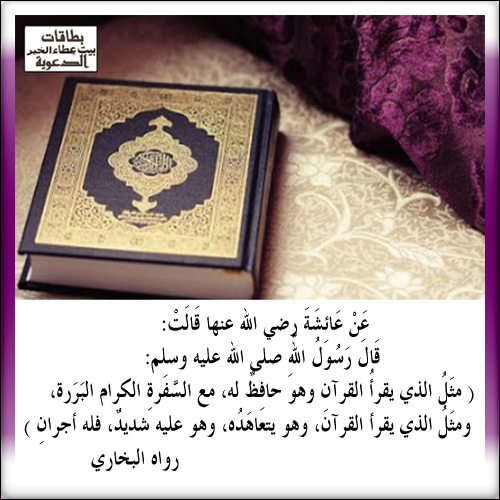 بطاقات
بيت عطاء الخير
الدعوية
القرآن الكريم
عَنْ عَائشَةَ رضي الله عنها قَالَتْ:
قَالَ رَسُوَلُ اللَّهِ صلى الله عليه وسلم:
( مثَلُ الذي يقرأُ القرآن وهوَ حافِظٌ له، مع السَّفَرةِ الكرام البَرَرة،
ومثَلُ الذي يقرأ القرآنَ، وهو يتعاهَدُه، وهو عليه شديدٌ، فله أجرانِ )
رواه البخاري